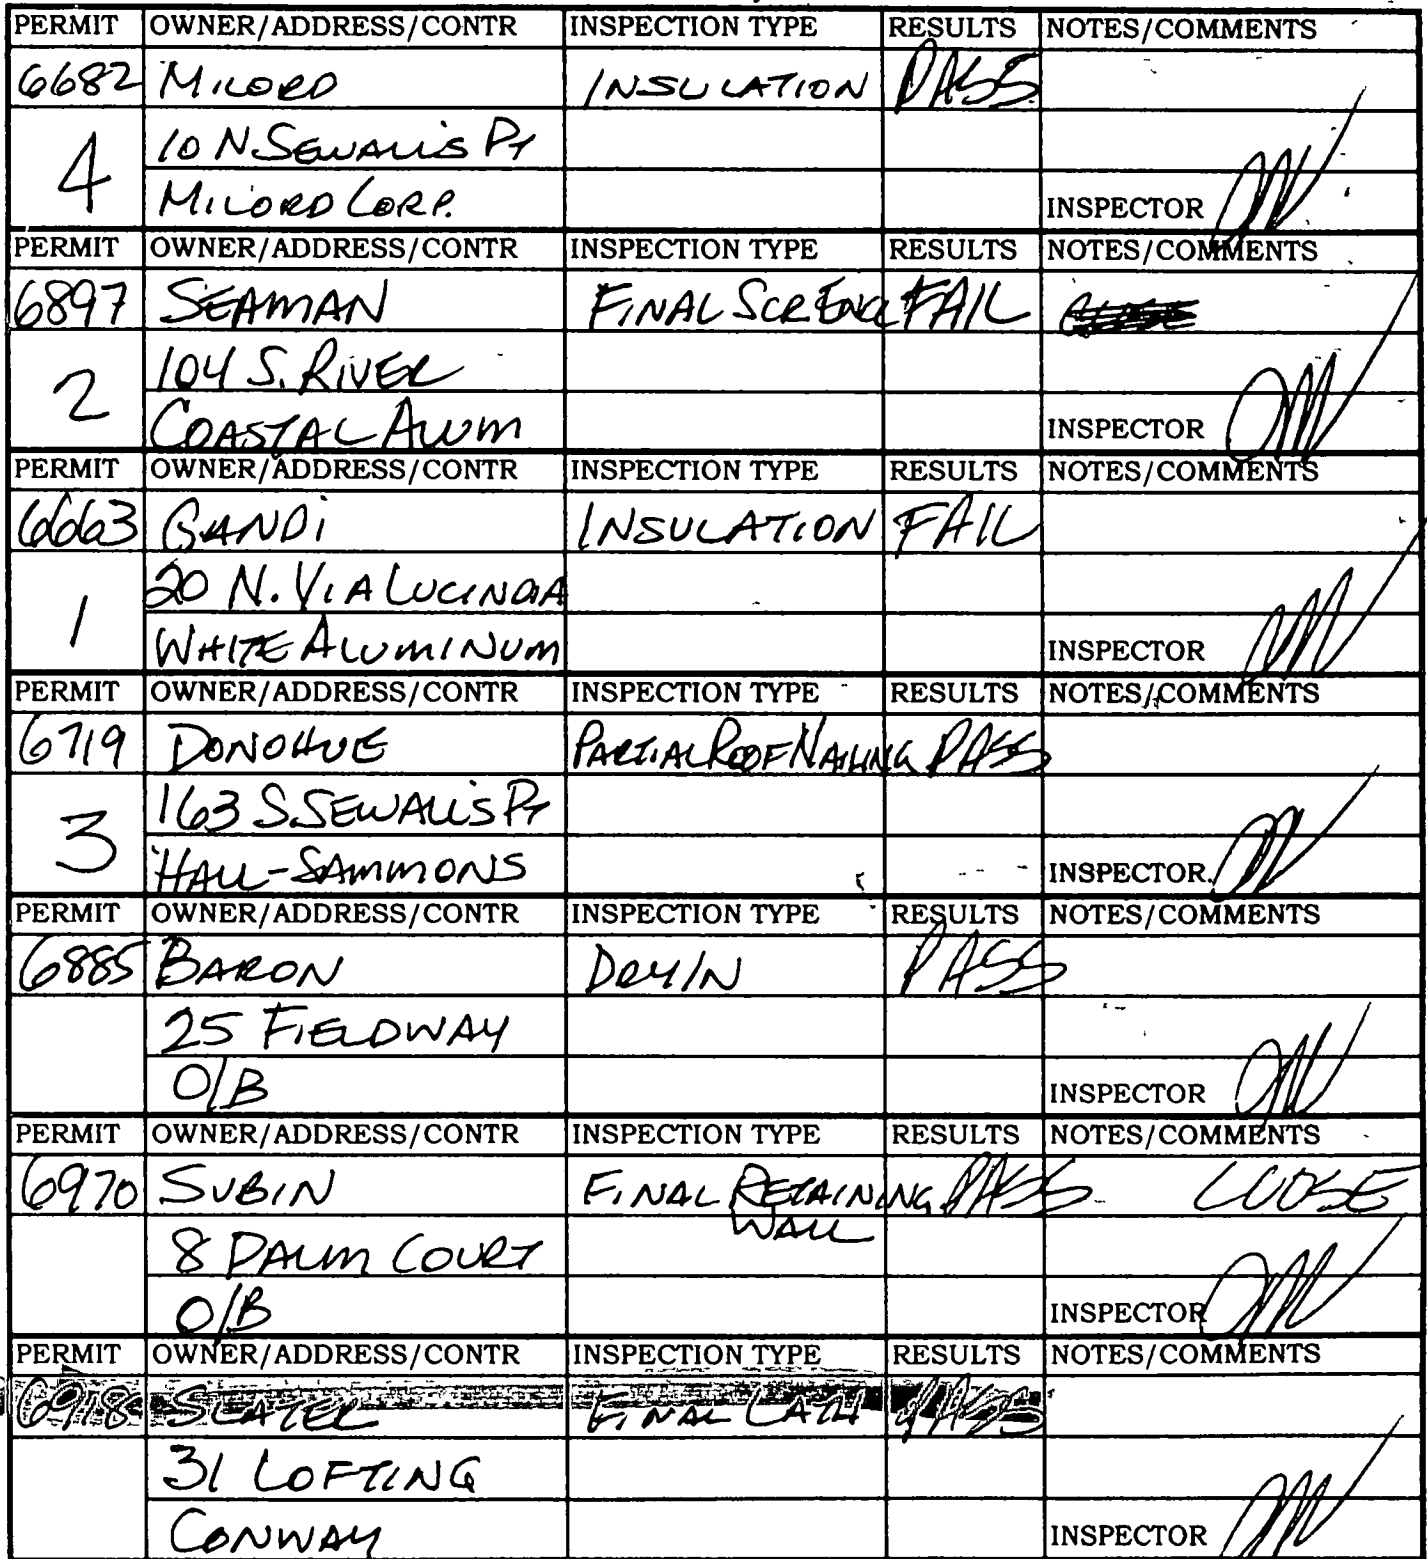 PERMIT OWNER/ADDRESS/CONTR INSPECTION TYPE RESULTS NOTES/COMMENTS
6682 MILORD INSULATION PASS
4 10 N SEWALL'S PT
MILORD CORP. INSPECTOR
PERMIT OWNER/ADDRESS/CONTR INSPECTION TYPE RESULTS NOTES/COMMENTS
6897 SEAMAN FINAL SCR ENCL FAIL
2 104 S. RIVER
COASTAL ALUM INSPECTOR
PERMIT OWNER/ADDRESS/CONTR INSPECTION TYPE RESULTS NOTES/COMMENTS
6663 GANDI INSULATION FAIL
1 20 N. VIA LUCINDIA
WHITE ALUMINUM INSPECTOR
PERMIT OWNER/ADDRESS/CONTR INSPECTION TYPE RESULTS NOTES/COMMENTS
6719 DONOHUE PARTIAL ROOF NAILING PASS
3 163 S. SEWALL'S PT
HALL-SAMMONS INSPECTOR
PERMIT OWNER/ADDRESS/CONTR INSPECTION TYPE RESULTS NOTES/COMMENTS
6885 BARON DRY IN PASS
25 FIELDWAY
O/B INSPECTOR
PERMIT OWNER/ADDRESS/CONTR INSPECTION TYPE RESULTS NOTES/COMMENTS
6970 SUBIN FINAL RETAINING PASS CLOSE
WALL
8 PALM COURT
O/B INSPECTOR
PERMIT OWNER/ADDRESS/CONTR INSPECTION TYPE RESULTS NOTES/COMMENTS
6918 SLATER FINAL LATH PASS
31 LOFTING
CONWAY INSPECTOR